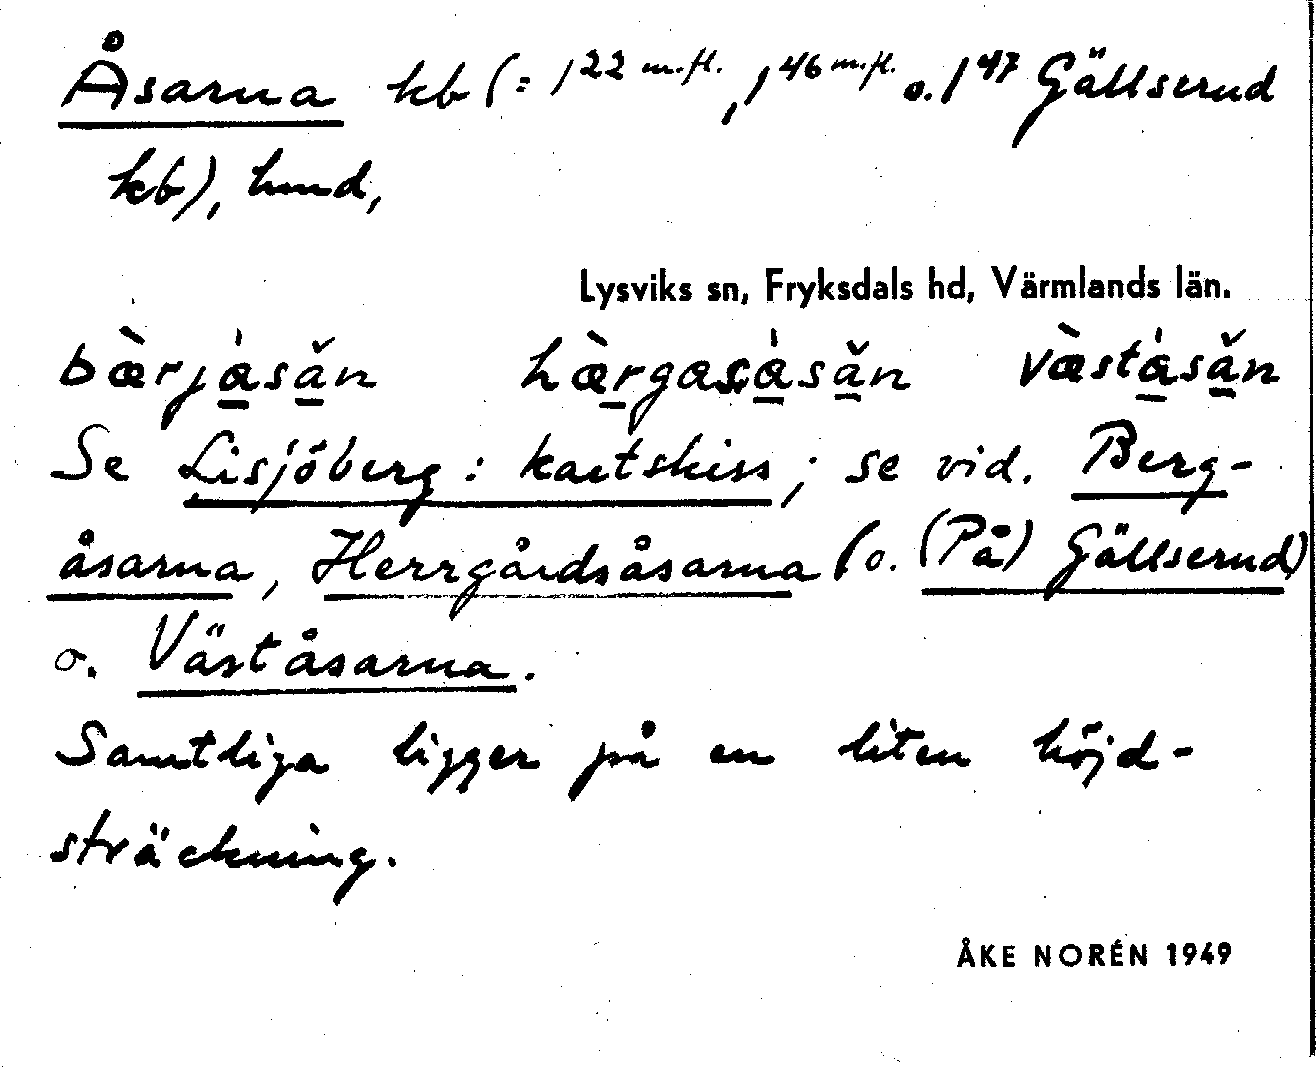 Åsarna kb (= 1²² m.fl., 1⁴⁶ m.fl. o. 1⁴⁷ Gällserud
kb), hmd,
Lysviks sn, Fryksdals hd, Värmlands län.
Se Lisjöberg: kartskiss; se vid. Berg-
åsarna, Herrgårdsåsarna (o. (På) Gällserud)
o. Väståsarna.
Samtliga ligger på en liten höjd-
sträckning.
ÅKE NORÉN 1949